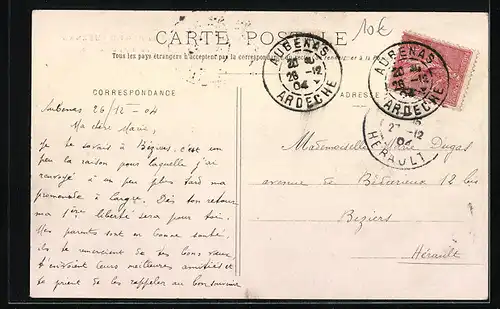 CARTE POSTALE
10€
Tous les pays étrangers n'acceptent pas la correspondance
CORRESPONDANCE
ADRESSE
AUBENAS
26 -12
04
ARDECHE
AUBENAS
26 -12
04
ARDECHE
27 -12
04
HERAULT
Aubenas 26/12-04
Ma chère Marie,
Je te savais à Béziers, c'est un
peu la raison pour laquelle j'ai
renvoyé à un peu plus tard ma
promenade à . Dès ton retour
ma 1ère liberté sera pour toi.
Mes parents sont en bonne santé,
ils te remercient de tes bons vœux,
t'envoient leurs meilleures amitiés et
te prient de les rappeler au bon souvenir
Mademoiselle Marie Dugas
avenue de Bédarieux 12 bis
Béziers
Hérault